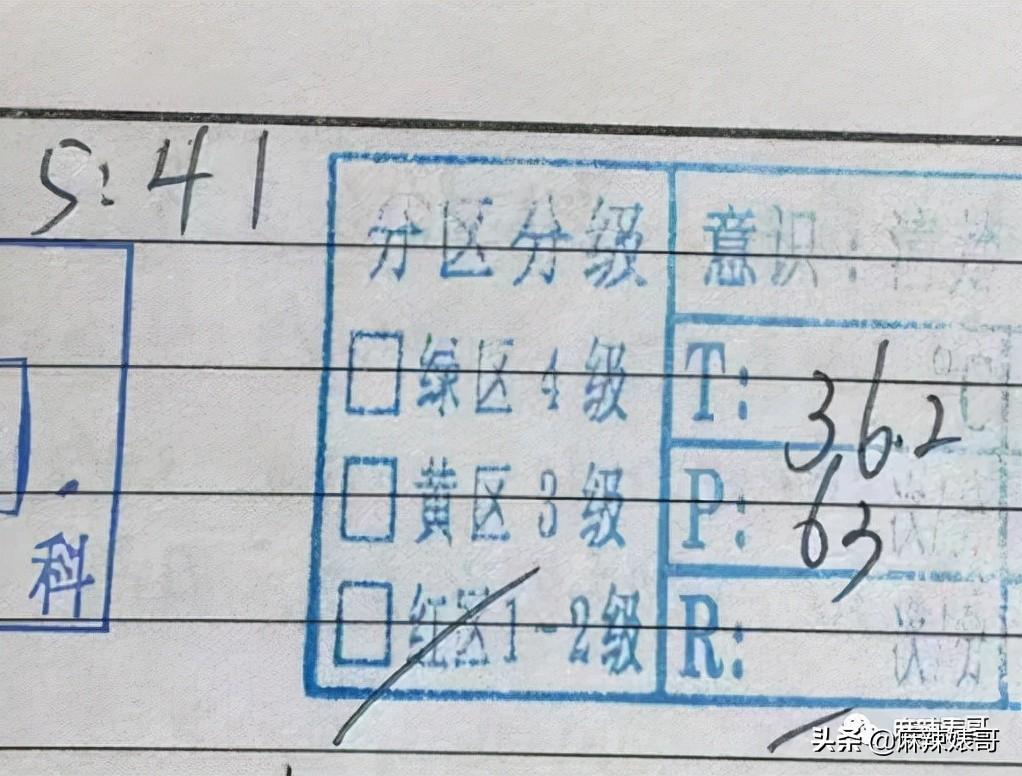 5:41
分区分级
意识:清楚
绿区4级
T: 36.2 ℃
黄区3级
P: 63 次/分
科
红区1-2级
R: 次/分
麻辣表哥
头条 @麻辣婊哥